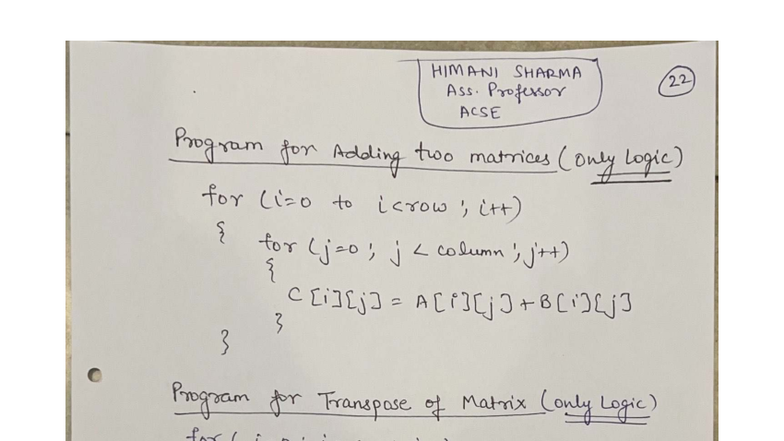 HIMANI SHARMA
Ass. Professor
ACSE
22
Program for Adding two matrices (only Logic)
for (i=0 to i<row ; i++)
{
for (j=0 ; j < column ; j++)
{
C[i][j] = A[i][j] + B[i][j]
}
}
Program for Transpose of Matrix (only Logic)
for (